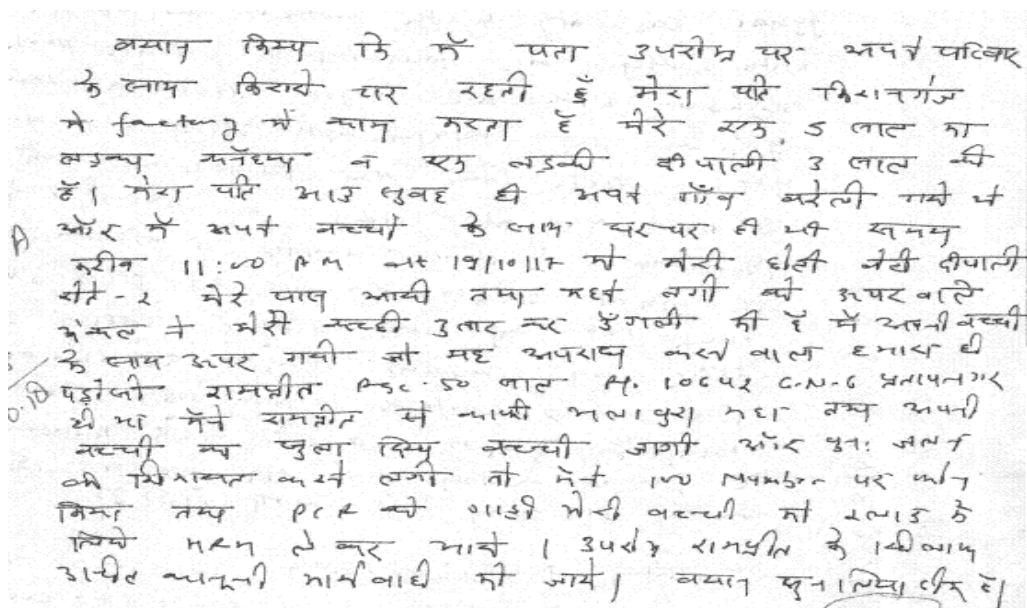 बयान किया कि मैं पता उपरोक्त पर अपने परिवार
के साथ किराये पर रहती हूँ मेरा पति किशनगंज
मे factory में काम करता है मेरे एक 5 साल का
लडका कन्हैया व एक लडकी दीपाली 3 साल की
है। मेरा पति आज सुबह ही अपने गाँव बरेली गये थे
A और मैं अपने बच्चो के साथ घर पर ही थी समय
करीब 11:00 AM पर 19/10/17 को मेरी छोटी बेटी दीपाली
रोते-2 मेरे पास आयी तथा कहने लगी की ऊपर वाले
अंकल ने मेरी कच्छी उतार कर उँगली की है मैं अपनी बच्ची
के साथ ऊपर गयी तो यह अपराध करने वाला हमारा ही
पड़ोसी रामप्रीत Age-50 साल 10642 प्रतापनगर
ही था मैंने रामप्रीत को काफी भला बुरा कहा तथा अपनी
बच्ची को सुला दिया बच्ची जागी और पुनः जलन
की शिकायत करने लगी तो मैंने 100 Number पर फोन
किया तथा PCR की गाडी मेरी बच्ची को इलाज के
लिये HRH लेकर आये। उपरोक्त रामप्रीत के खिलाफ
उचित कानूनी कार्यवाही की जाये। बयान सुन लिया ठीक है।